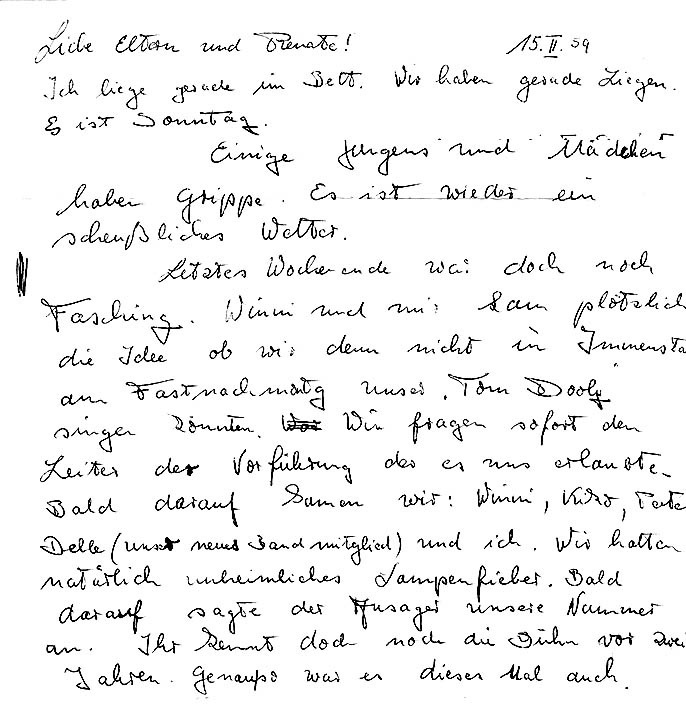 Liebe Eltern und Renate! 15.II.59
Ich liege gerade im Bett. Wir haben gerade Liegen.
Es ist Sonntag.
Einige Jungens und Mädchen
haben Grippe. Es ist wieder ein
scheußliches Wetter.
Letztes Wochenende war doch noch
Fasching. Winni und mir kam plötzlich
die Idee ob wir denn nicht in Immensta
am Fastnachmontg unser "Tom Dooly"
singen könnten. Wir fragen sofort den
Leiter der Vorführung der es uns erlaubte.
Bald darauf kamen wir: Winni, Kuko, Pete
Delle (unser neues Bandmitglied) und ich. Wir hatten
natürlich unheimliches Lampenfieber. Bald
darauf sagte der Ansager unsere Nummer
an. Ihr kennt doch noch die Bühn vor zwei
Jahren. Genauso war es dieser Mal auch.